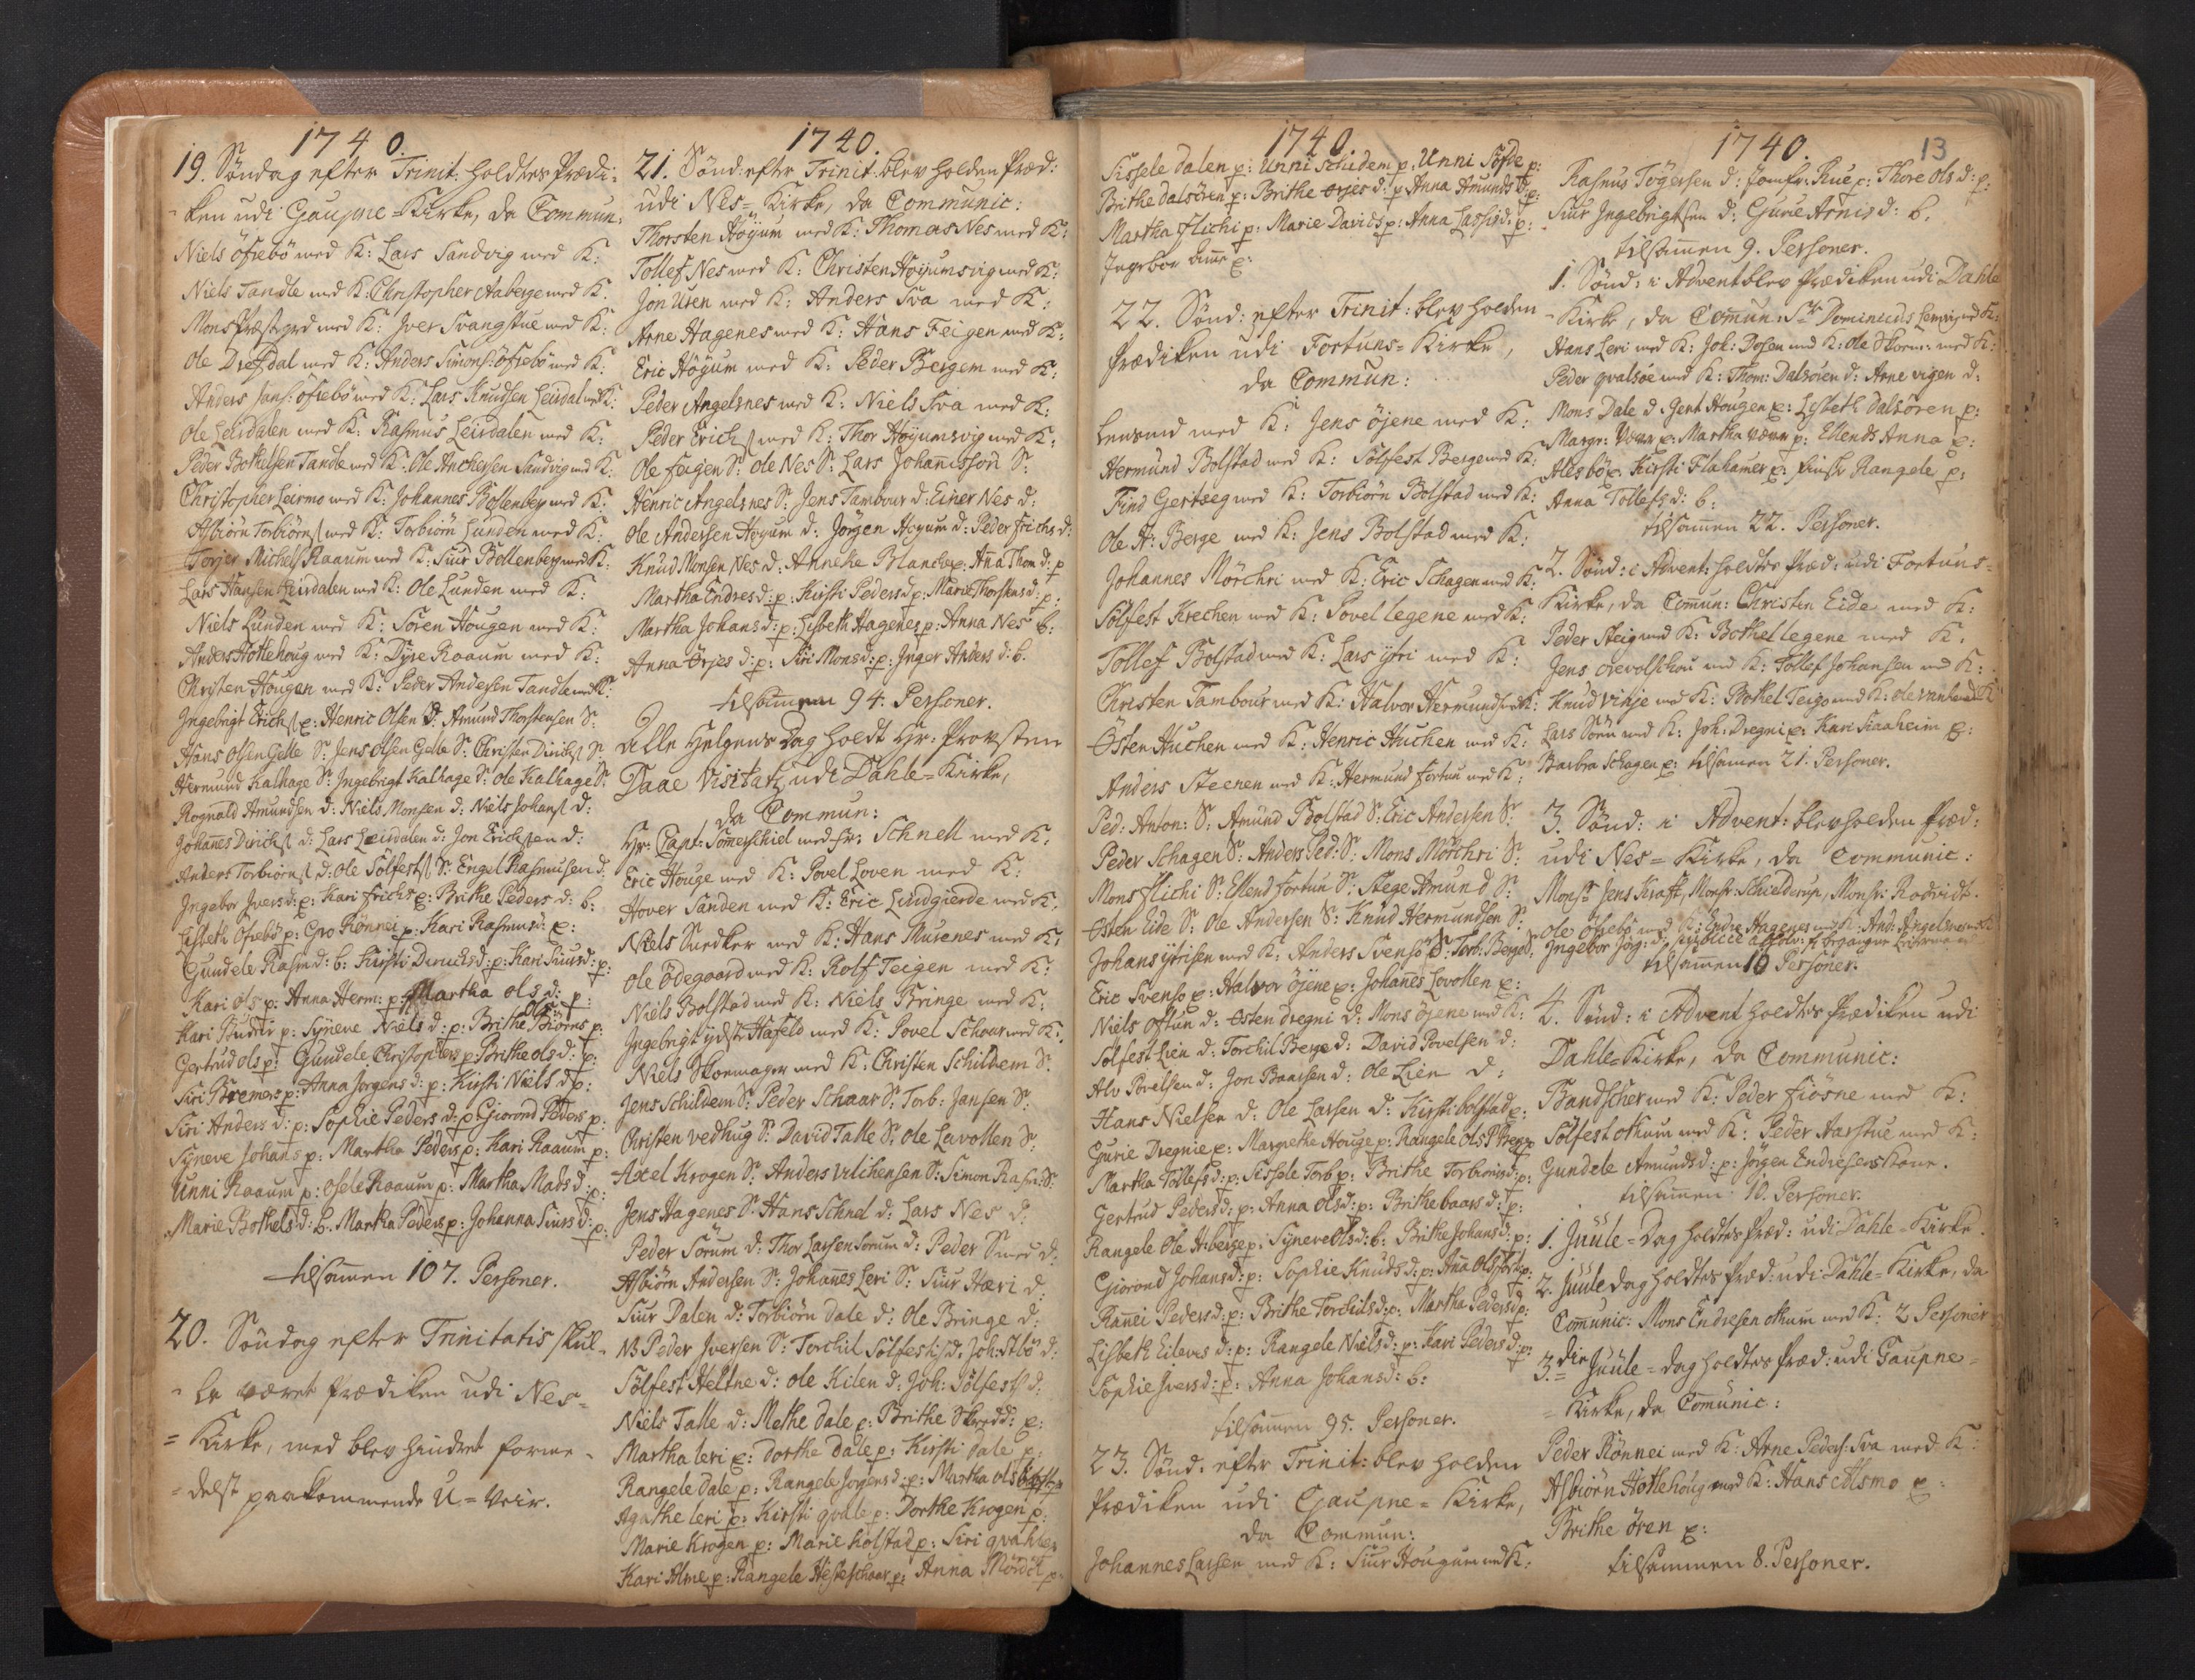 1740.
19. Søndag efter Trinit: holdtes Prædi-
ken udi Gaupne-Kirke, da Commun:
Niels öfrebö med K: Lars Sandvig med K:
Niels Tandle med K: Christopher Aaberge med K.
Mons Præstgrd med K: Jver Svangstue med K:
Ole Drefdal med K: Anders Simons: öfrebö med K:
Anders Jans: öfrebö med K: Lars Knudsen Leirdal med K:
Ole Leirdalen med K: Rasmus Leirdalen med K:
Peder Bothelsen Tandle med K: Ole Anchersen Sandvig med K:
Christopher Leirmo med K: Johannes Bollenberg med K:
Asbiörn Torbiörns: med K: Torbiörn Lunden med K:
Torjer Michels: Raaum med K: Siur Bollenberg med K:
Lars Hansen Leirdalen med K: Ole Lunden med K:
Niels Lunden med K: Sören Hougen med K:
Anders Hottehoug med K: Dyre Raaum med K:
Christen Hougen med K: Peder Andersen Tandle med K:
Ingebrigt Erichs: p: Henric Olsen S: Amund Thorstensen S:
Hans Olsen Gelle S: Jens Olsen Gelle S: Christen Dirichs: S:
Hermund Kalhage S: Ingebrigt Kalhage S: Ole Kalhage S:
Rognald Amundsen d: Niels Monsen d: Niels Johans: d:
Johanes Dirichs: d: Lars Leirdalen d: Jon Erichsen d:
Anders Torbiörns: d: Ole Sölfests: S: Engel Rasmusen d.
Ingebor Jversd: p: Kari Frichs p: Brithe Peders d: b:
Lisbeth Öfrebö p: Gro Rönnei p: Kari Rasmusd: p:
Gundele Rasmd: b: Kirsti Dirichsd: p: Kari Siursd: p:
Kari Ols p: Anna Herm: p: Martha Ols d: p:
Kari p: Syneve Niels d: p: Brithe Biörns p:
Gertrud Ols p: Gundele Christophers p: Brithe Ols d: p:
Siri Bremers p: Anna Jörgens d: p: Kirsti Niels d p:
Siri Anders d: p: Sophie Peders d: p: Giorond Peders p:
Syneve Johans p: Martha Peders p: Kari Raaum p:
Unni Raaum p: Osele Raaum p: Martha Mads d: p:
Marie Bothels d: b. Martha Peders p: Johanna Siurs d: p:
tilsamen 107. Personer.
20. Söndag efter Trinitatis skul-
le været Prædiken udi Nes-
Kirke, med blev hindret forme-
delst paakommende U-Veir.
1740.
21. Sönd: efter Trinit: blev holden Præd:
udi Nes-Kirke, da Communic:
Thorsten Höyum med K: Thomas Nes med K:
Tollef Nes med K: Christen Höyumsvig med K:
Jon Uren med K: Anders Sva med K:
Arne Hagenes med K: Hans Feigen med K:
Eric Höyum med K: Peder Bergem med K:
Peder Angelsnes med K: Niels Sva med K:
Peder Erichs: med K: Thor Höyumsvig med K:
Ole Feigen S: Ole Nes S: Lars Johannesson S:
Henric Angelsnes S: Jens Tambour d: Einer Nes d:
Ole Andersen Höyum d: Jörgen Höyum d: Peder Frichs d:
Knud Monsen Nes d: Anneke Blanche p: Anna Thom d: p
Martha Endres d: p: Kirsti Peders d p: Marie Thorstens d: p:
Martha Johans d: p: Lisbeth Hagenes p: Anna Nes b:
Anna Örjes d: p: Siri Mons d: p: Inger Anders d: b.
tilsammen 94. Personer.
Alle Helgens Dag holdt Hr: Provsten
Daae Visitatz udi Dahle-Kirke,
da Commun:
Hr: Capt: Sömerschiel med Fr: Schnell med K:
Eric Houge med K: Povel Loven med K:
Hover Sanden med K: Eric Lindgierde med K:
Niels Snedker med K: Hans Murenes med K:
Ole Ödegaard med K: Rolf Teigen med K:
Niels Bolstad med K: Niels Bringe med K:
Ingebrigt ydste Hafeld med K: Povel Schaar med K:
Niels Skoemager med K: Christen Schildem S:
Jens Schildem S: Peder Schaar S: Torb: Jansen S:
Christen Vedhug S: David Talle S: Ole Lavollen S:
Axel Krogen S: Anders Wilchensen S: Simon Rasm: S:
Jens Hagenes S: Hans Schnel d: Lars Nes d:
Peder Sörum d: Thor Larsen Sorum d: Peder Smed d:
Asbiörn Andersen S: Johanes Leri S: Siur Hæri d:
Siur Dalen d: Torbiörn Dale d: Ole Bringe d:
NB Peder Jversen S: Torchil Sölfests: d: Joh: Stbö d:
Sölfest Heltne d: Ole Kilen d: Joh: Sölfests: d:
Niels Talle d: Methe Dale p: Brithe Skredd: p:
Martha Leri p: Dorthe Dale p: Kirsti Dale p:
Rangele Dale p: Rangele Jörgens d: p: Martha Ols
Agathe Leri p: Kirsti Qvale p: Dorthe Krogen p:
Marie Krogen p: Marie Kolstad p: Siri Qvahle p
Kari Alme p: Rangele Hesteschaar p: Anna p
1740.
Sissele Dalen p: Unni Schildem p: Unni Söfde p:
Brithe Dalsören p: Brithe Örjes d: p Anna Amunds d: p:
Martha Flichi p: Marie Davids p: Anna Lassis d: p:
Ingebor Amme p:
22. Sönd: efter Trinit: blev holden
Prædiken udi Fortuns-Kirke,
da Commun:
Lensmd med K: Jens Öjene med K:
Hermund Bolstad med K: Sölfest Berge med K:
Find Gertseg med K: Torbiörn Bolstad med K:
Ole A: Berge med K: Jens Bolstad med K:
Johannes Mörchri med K: Eric Schagen med K:
Sölfest Krechen med K: Povel Legene med K:
Tollef Bolstad med K: Lars ytri med K:
Christen Tambour med K: Halvor Hermunds: med K:
Östen Huchen med K: Henric Huchen med K:
Anders Steenen med K: Hermund Fortun med K:
Ped: Anton: S: Amund Bolstad S: Eric Andersen S:
Peder Schagen S: Anders Ped: S: Mons Mörchri S:
Mons Flichi S: Ellend Fortun S: Stege Amund S:
Östen Eide S: Ole Andersen S: Knud Hermundsen S:
Johans ytrisen med K: Anders Svensö S: Torb: Berge d:
Eric Svensö p: Halvor Öjene p: Johanes Lovollen p:
Niels Oftun d: Östen Dregni d: Mons Öjene med K:
Sölfest Lien d: Torchil Berge d: David Povelsen d:
Alv Povelsen d: Jon Baarsen d: Ole Lien d:
Hans Nielsen d: Ole Larsen d: Kirsti Bolstad p:
Gurie Dregni p: Margrethe Houge p: Rangele Ols
Martha Tollefs d: p: Sissele Torb p: Brithe Torbiörns d: p:
Gertrud Peders d: p: Anna Ols d: p: Brithe Baars d: p:
Rangele Ole A: Berge p: Syneve Ols d: b: Brithe Johans d: p:
Giorond Johans d: p: Sophie Knuds d: p: Ana Ols
Rannei Peders d: p: Brithe Torchils d: p: Martha Peders d p:
Lisbeth Eilevs d: p: Rangele Niels d: p: Kari Peders d: p:
Sophie Jvers d: p: Anna Johans d: b:
tilsamen 95. Personer.
23. Sönd. efter Trinit: blev holden
Prædiken udi Gaupne-Kirke,
da Commun:
Johannes Larsen med K: Siur Hougum med K:
1740.
13
Rasmus Tögersen d: Jomfr. Rue p: Thore Ols d: p:
Siur Ingebrigtsen d: Gurie Arnis d: b.
tilsamen 9. Personer.
1. Sönd: i Advent blev Prædiken udi Dahle
Kirke, da Comun: Sr Dominicus Lemvig med K:
Hans Leri med K: Joh: Posen med K: Ole Skoem: med K:
Peder Qvalsöe med K: Thom: Dalsören d: Arne Vigen d:
Mons Dale d. Gert Hougen p: Lisbeth Dalsören p:
Margr: Værr p: Martha Værr p: Ellends Anna p:
Alesbö p: Kirsti Flahamer p: Rangele p:
Anna Tollefs d: b:
tilsamen 22. Personer.
2. Sönd: i Advent: holdtes Præd: udi Fortuns-
Kirke, da Comun: Christen Eide med K:
Peder Steig med K: Bothel Legene med K:
Jens med K: Tollef Johansen med K:
Knud Vinje med K: Bothel Teigo med K: Ole
Lars Sören med K: Joh: Dregni p: Kari Skaaheim p:
Barbra Schagen p: tilsamen 21. Personer.
3. Sönd: i Advent: blev holden Præd:
udi Nes-Kirke, da Communic:
Monsr: Jens Kraft, Monsr: Schielderup, Monsr: Rodvidt.
Ole Öfrebö med K: Endre Hagenes med K: And: Angelsnes med K
Ingebor Jörg: d: publice absolv:
tilsamen 10 Personer.
4. Sönd: i Advent holdtes Prædiken udi
Dahle-Kirke, da Communic:
Bandscher med K: Peder Fiösne med K:
Sölfest Okum med K: Peder Aarstue med K:
Gundele Amunds d: p: Jörgen Endresens Kone.
tilsamen 10. Personer.
1. Juule-Dag holdtes Præd: udi Dahle-Kirke.
2. Juule Dag holdtes Præd: udi Dahle-Kirke, da
Comunic: Mons Endresen Okum med K: 2 Personer
3die Juule-Dag holdtes Præd: udi Gaupne-
Kirke, da Comunic:
Peder Rönnei med K: Arne Peders: Sva med K:
Asbiörn Hottehoug med K: Hans Alsmo p:
Brithe Ören p:
tilsammen 8. Personer.